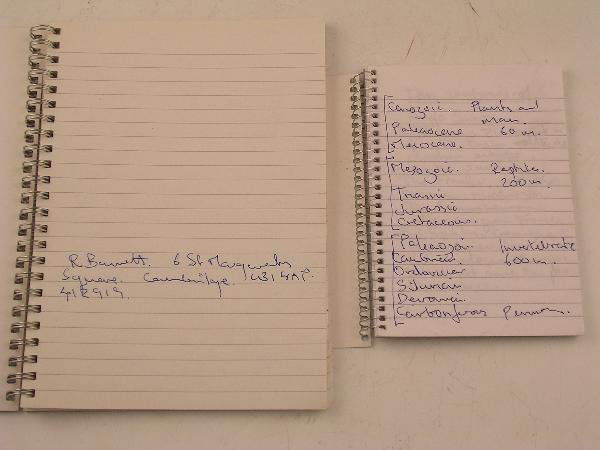 R Barrett. 6 St Margarets
Square. Cambridge. CB1 4AP.
412919.
Cenozoic. Plants and
man.
Palaeocene 60 m.
Meiocene.
Mesozoic. Reptiles.
200 m.
Triassic
Jurassic
Cretaceous.
Palaeozoic Invertebrate
Cambrian 600 m.
Ordovician
Silurian
Devonian
Carboniferous Permian.